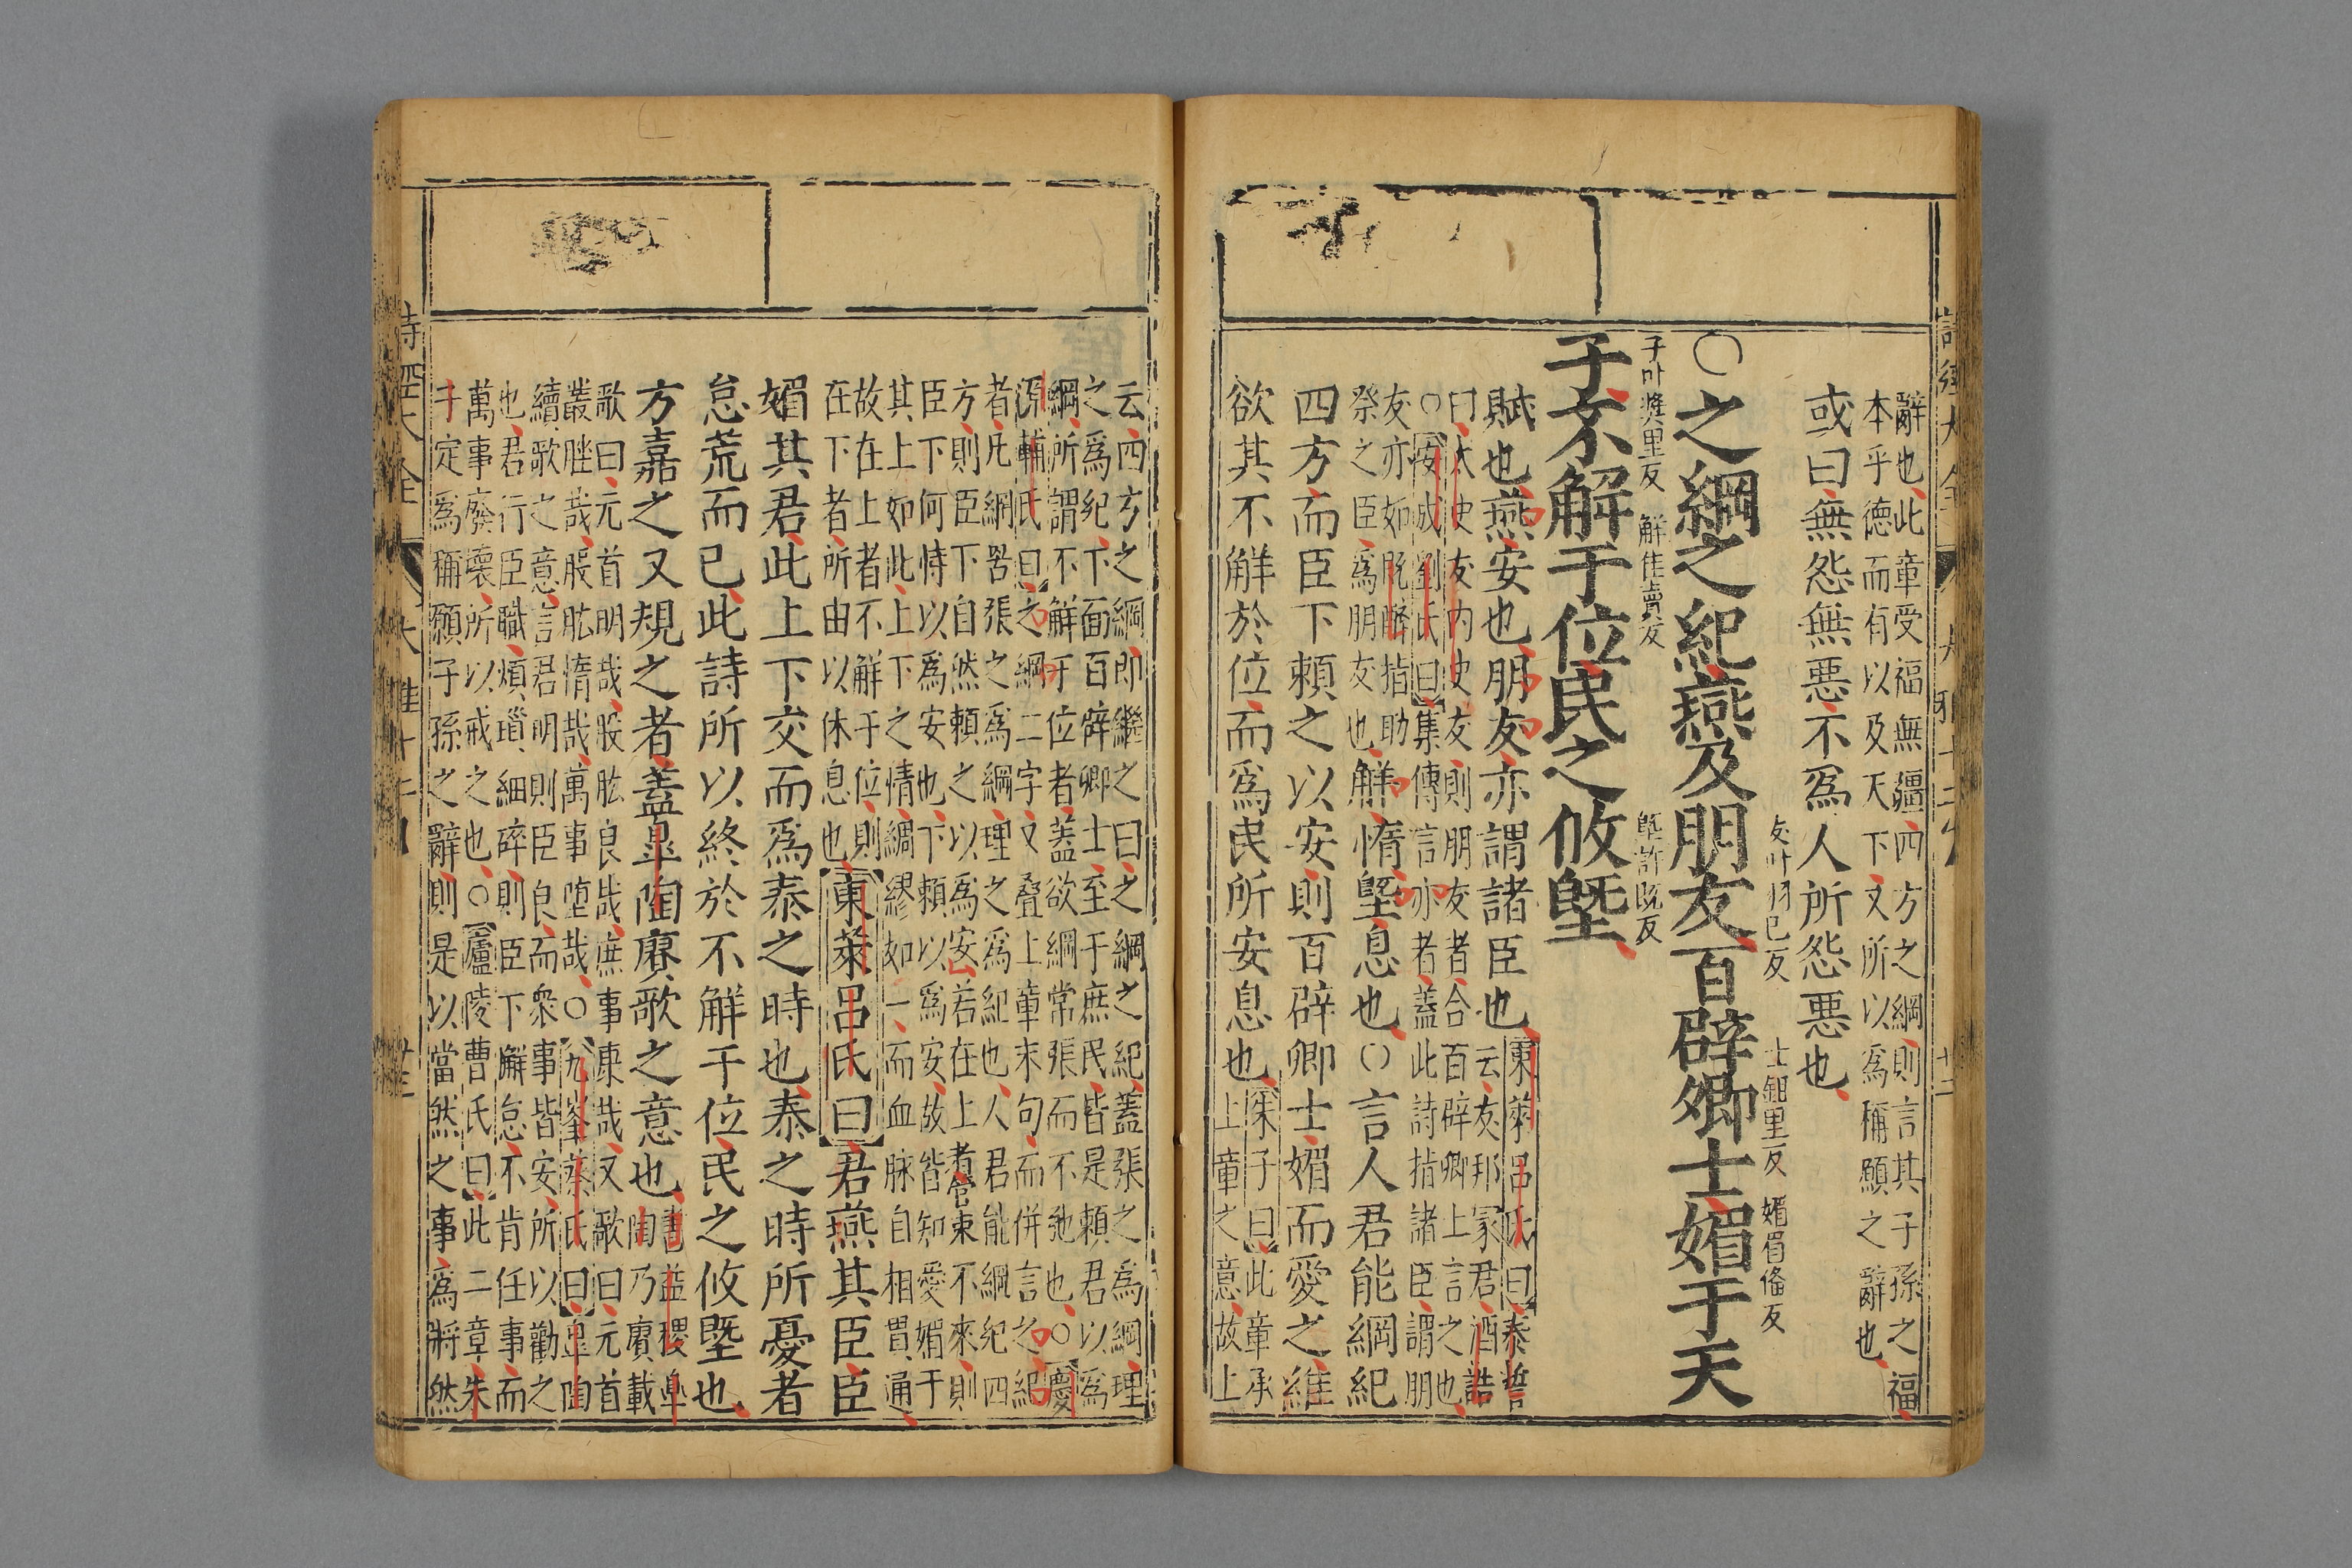 辭也此章受福無疆四方之綱則言其子孫之福
本乎德而有以及天下又所以爲稱願之辭也
或曰無怨無惡不爲人所怨惡也
友叶羽已反 士鉏里反 媚眉俻反
○之綱之紀燕及朋友百辟卿士媚于天
子叶獎里反 解佳賣反 塈許既反
子不解于位民之攸塈
賦也燕安也朋友亦謂諸臣也
東萊呂氏曰泰誓
云友邦冢君酒誥
曰太史友內史友則朋友者合百辟卿上言之也
○安成劉氏曰集傳言亦者蓋此詩指諸臣謂朋
友亦如旣醉指助
祭之臣爲朋友也
解惰塈息也○言人君能綱紀
四方而臣下賴之以安則百辟卿士媚而愛之維
欲其不解於位而爲民所安息也
朱子曰此章承
上章之意故上
云四方之綱即繼之曰之綱之紀蓋張之爲綱理
之爲紀下面百辟卿士至于庶民皆是賴君以爲
綱所謂不解于位者蓋欲綱常張而不弛也○慶
源輔氏曰之綱二字又疊上章末句而併言之紀
者凡綱罟張之爲綱理之爲紀也人君能綱紀四
方則臣下自然賴之以爲安若在上者管束不來則
臣下何恃以爲安也下賴以爲安故皆知愛媚于
其上如此上下之情綢繆如一而血脉自相貫通
故在上者不解于位則
在下者所由以休息也
東萊呂氏曰君燕其臣臣
媚其君此上下交而爲泰之時也泰之時所憂者
怠荒而已此詩所以終於不解于位民之攸塈也
方嘉之又規之者蓋臯陶賡歌之意也
書益稷臯
陶乃賡載
歌曰元首明哉股肱良哉庶事康哉又歌曰元首
叢脞哉股肱惰哉萬事墮哉○九峯蔡氏曰臯陶
續歌之意言君明則臣良而衆事皆安所以勸之
也君行臣職煩瑣細碎則臣下懈怠不肯任事而
萬事廢壞所以戒之也○廬陵曹氏曰此二章朱
子定爲稱願子孫之辭則是以當然之事爲將然
詩經大全